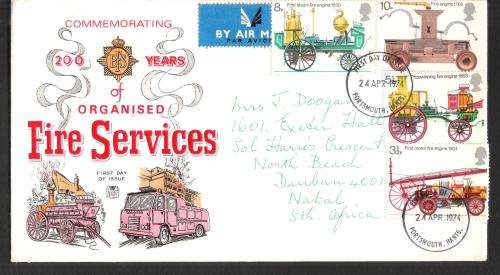 COMMEMORATING
200 YEARS
of
ORGANISED
Fire Services
FIRST DAY
OF
ISSUE
BY AIR M
PAR AVION
8p First steam fire engine 1830
10p Fire engine 1766
5½p Prizewinning fire engine 1863
3½p First motor fire engine 1904
FIRST DAY OF ISSUE
24 APR 1974
PORTSMOUTH, HANTS.
24 APR 1974
PORTSMOUTH, HANTS.
Mrs J. Doogan
1601, Exeter Hall
Sol Harris Crescent
North Beach
Durban 4001
Natal
Sth. Africa